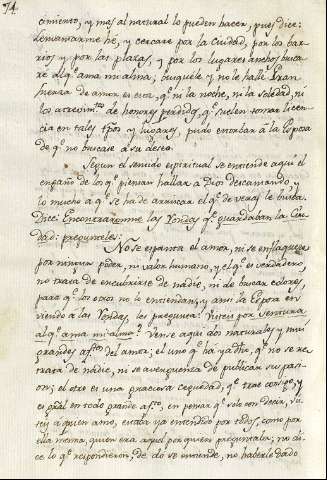 74.
cimiento, y mas al natural lo pueden hacer, pues dice:
Levantarme he, y cercaré por la Ciudad, por los bar-
rios y por las plazas, y por los lugares anchos busca-
re al q.e ama mi alma, busquele y no le hallé. Gran
fuerza de amor es esta, q.e ni la noche, ni la soledad, ni
los atrevim.tos de hombres perdidos, q.e suelen tomar licen-
cia en tales tpos y lugares, pudo estorbar á la Esposa
de q.e no buscase á su deseo.
Segun el sentido espiritual se entiende aqui el
engaño de los q.e piensan hallar a Dios descansando, y
lo mucho á q.e se ha de arriscar el q.e de veras le busca.
Dice: Encontraronme las Rondas q.e guardaban la Ciu-
dad: pregunteles:
No se espanta el amor, ni se enflaquece
por ningun poder, ni valor humano, y el q.e es verdadero
no trata de encubrirse de nadie, ni de buscar colores
para q.e los otros no le entiendan, y ansi la Esposa en
viendo á las Rondas, les pregunta: Visteis por ventura
al q.e ama mi alma? Vense aqui dos naturales y mui
grandes af.tos del amor; el uno q.e ha ya dho, q.e no se re-
trata de nadie, ni se averguenza de publicar su pas-
sion; el otro es una graciosa ceguedad, q.e trae consigo, y
es gral en todo grande af.to, en pensar q.e solo con decir, vis-
teis a quien amo, estaba ya entendido por todos, como por
ella misma, quien era aquel por quien preguntaba; no di-
ce lo q.e respondieron; de do se entiende, no haberle dado